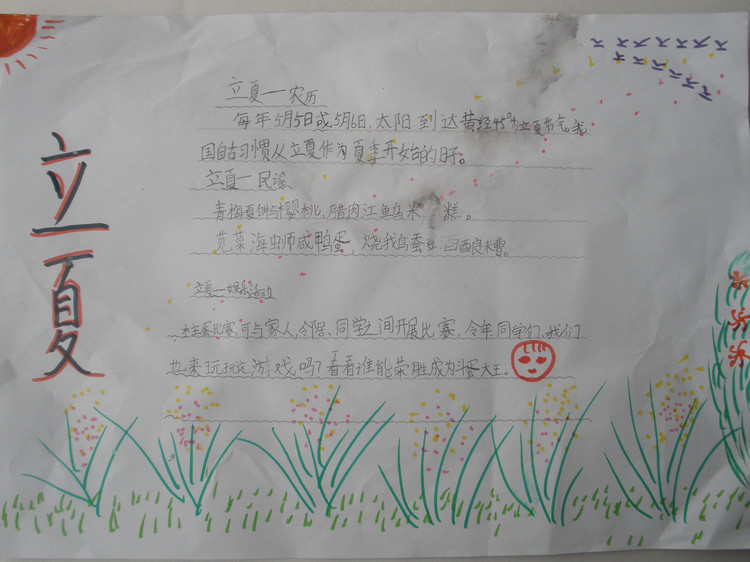 立夏
立夏一农历
每年5月5日或5月6日,太阳到达黄经45°为立夏节气。我
国自古习惯从立夏作为夏季开始的日子。
立夏一民谣
青梅夏饼与樱桃,腊肉江鱼乌米 糕。
苋菜海蛳咸鸭蛋,烧鹅蚕豆
立夏一娱乐活动
比赛,可与家人,邻居、同学之间开展比赛,今年同学们,我们
也来玩玩这游戏吗?看看谁能荣胜成为斗蛋大王。